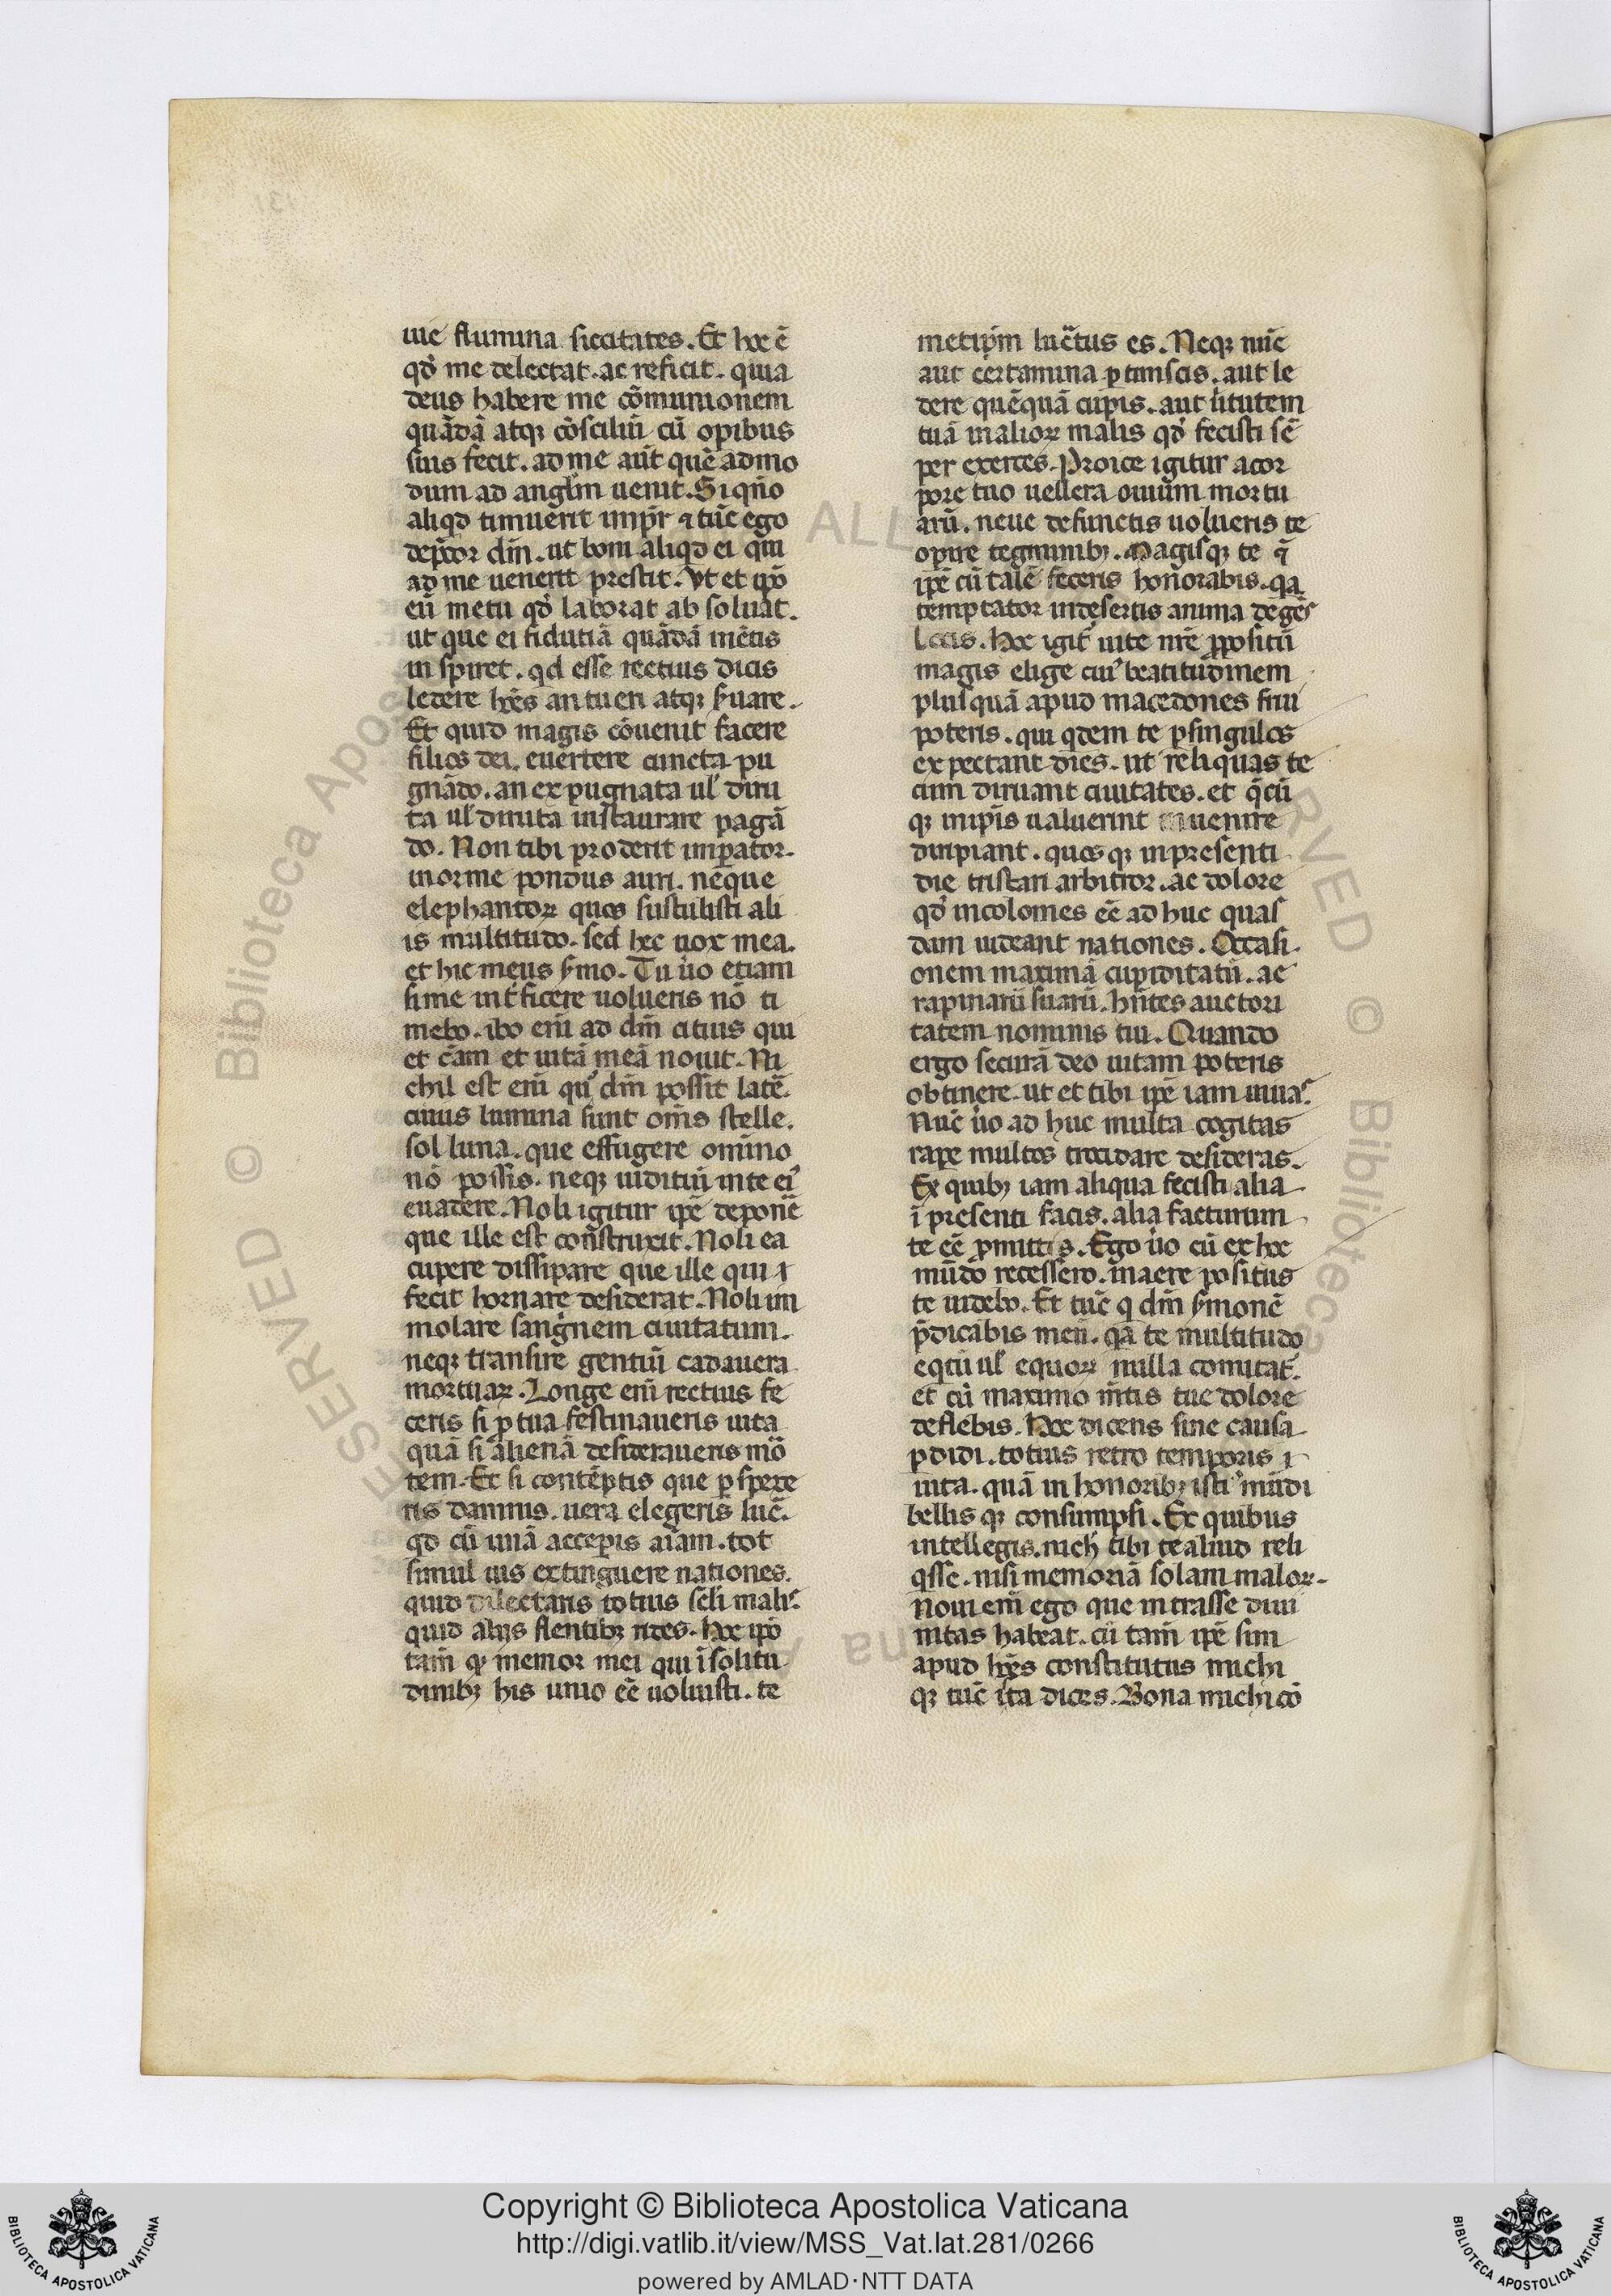 uie flumina siccitates. Et hoc ē
qđ me delectat. ac reficit. quia
deus habere me cōmunionem
quādā atqꝫ cōsciliū cū opibus
suis fecit. ad me aūt quē admo
dum ad angłm uenit. Si qn̄o
aliqd timuerit imp̄r ⁊ tūc ego
dep̄cor dm̄. ut boni aliqd ei qui
ad me uenerit prestit. Vt et ip̄o
eū metu qđ laborat ab soluat.
ut que ei fidutiā quādā mētis
in spiret. qd esse rectius dicis
ledere hōes an tueri atqꝫ s̄uare.
Et quid magis cōuenit facere
filios dei. euertere cuncta pu
gnādo. an ex pugnata ul̓ diru
ta ul̓ diruta instaurare pagā
do. Non tibi proderit imꝑator.
inorme pondus auri. neque
elephantoꝝ quos sustulisti ali
is multitudo. sed hec uox mea.
et hic meus s̄mo. Tu ūo etiam
si me int̄ficere uolueris nō ti
mebo. ibo eni̅ ad dm̄ citius qui
et cām et uitā meā nouit. Ni
chil est eni̅ qđ dm̄ possit latē.
cuius lumina sunt om̄s stelle.
sol luna. que effugere omīno
nō possis. neqꝫ iuditiū inte ei᷒
euadere. Noli igitur ip̄e deponē
que ille est construxit. Noli ea
cupere dissipare que ille qui ⁊
fecit hornare desiderat. Noli im
molare sang̓nem ciuitatum.
neqꝫ transire gentiū cadauera
mortuaꝝ. Longe eni̅ rectius fe
ceris si ꝓ tua festinaueris uita
quā si alienā desideraueris mō
tem. Et si contēptis que ꝑ spexe
ris damnis. uera elegeris lucē.
qd cū unā acceꝑis aīam. tot
simul uis extinguere nationes.
quid dilectaris totius scłi malis.
quid aliis flentibꝫ rides. Hoc ip̄o
tam̄ qꝫ memor mei qui ī solitu
dinibꝫ his uiuo eē uoluisti. te
metip̄m lucr̄tus es. Neqꝫ nūc
aut certamina ꝑ timscis. aut le
dere quēquā cupis. aut ūtutem
tuā in alioꝝ malis qđ fecisti sē
per exerces. Proice igitur acor
pore tuo uellera ouium mortu
arū. neue defunctis uolueris te
operire tegminibꝫ. Magisqꝫ te q̄
ip̄e cū talē feceris honorabis. qa
temptator indesertis anima degēs
locis. Hoc igit̄ uite nr̄e ꝓpositū
magis elige cui᷒ beatitudinem
plusquā apud macedones frui
poteris. qui qdem te ꝑsingulos
expectant dies. ut reliquas te
cum diruant ciuitates. et q̄cū
qꝫ inip̄is ualuerint inuenire
diripiant. quos qꝫ inpresenti
die tristari arbitror. ac dolore
qđ incolomes eē ad huc quas
dam uideant nationes. Occasi
onem maximā cupiditatū. ac
rapinarū suarū. hn̄tes auctori
tatem nominis tui. Quando
ergo securā deo uitam poteris
obtinere. ut et tibi ip̄e iam uiuas.
Nūc ūo ad huc multa cogitas
rape multos trocidare desideras.
Ex quibꝫ iam aliqua fecisti alia
ī presenti facis. alia facturum
te eē ꝓmittis. Ego ūo cū ex hoc
mūdo recessero. inaere positus
te uidebo. Et tūc q dm̄ s̄monē
p̄dicabis meū. qn̄ te multitudo
eqtū ul̓ equoꝝ nulla comitat̄.
et cū maximo m̄tis tue dolore
deflebis. Hoc dicens sine causa
ꝑdidi. totius retro temporis ⁊
uita. quā in honoribꝫ isti᷒ mūdi
bellis qꝫ consumpsi. Ex quibus
intellegis. nich̄ tibi te aliud reli
qsse. nisi memoriā solam maloꝝ.
Noui eni̅ ego que intrasse diui
nitas habeat. cū tam̄ ip̄e sim
apud hōes constitutus michi
qꝫ tūc ita dices. Bona michi cō
Copyright © Biblioteca Apostolica Vaticana
http://digi.vatlib.it/view/MSS_Vat.lat.281/0266
powered by AMLAD·NTT DATA